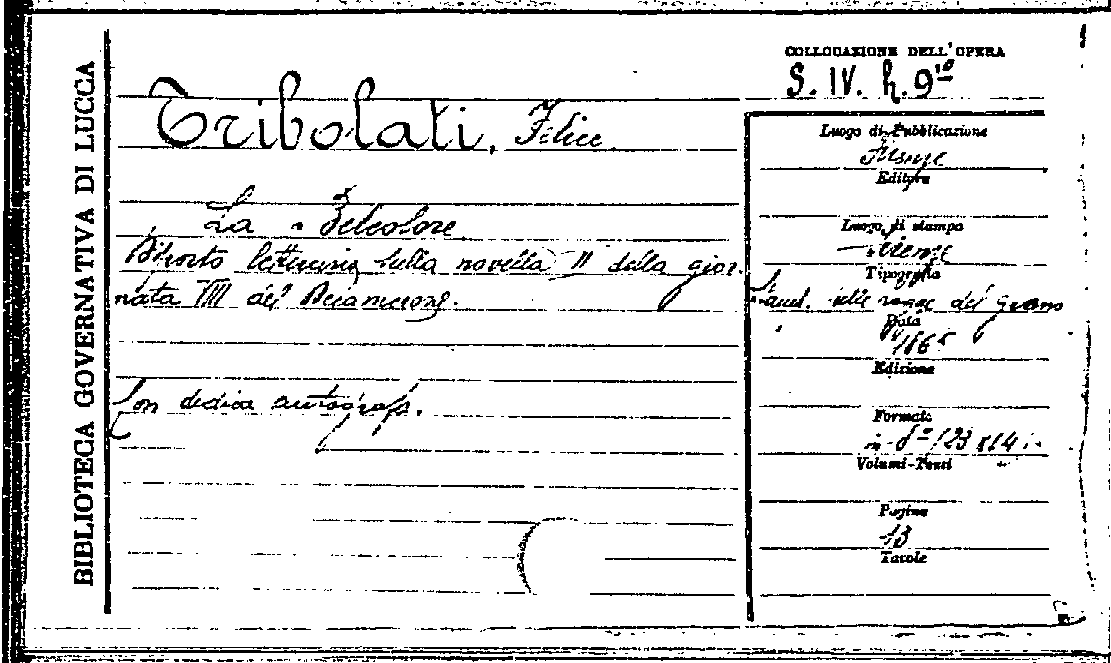 BIBLIOTECA GOVERNATIVA DI LUCCA
COLLOCAZIONE DELL'OPERA
S. IV. h. 9
Tribolati, Felice
La Belcolore
letterario sulla novella II della gior-
nata VIII del Decamerone.
Con dedica autografa.
Luogo di Pubblicazione
Firenze
Editore
Luogo di stampa
Firenze
Tipografia
del grano
Data
1865
Edizione
Formato
in-8º
Volumi-Tomi
Pagine
13
Tavole